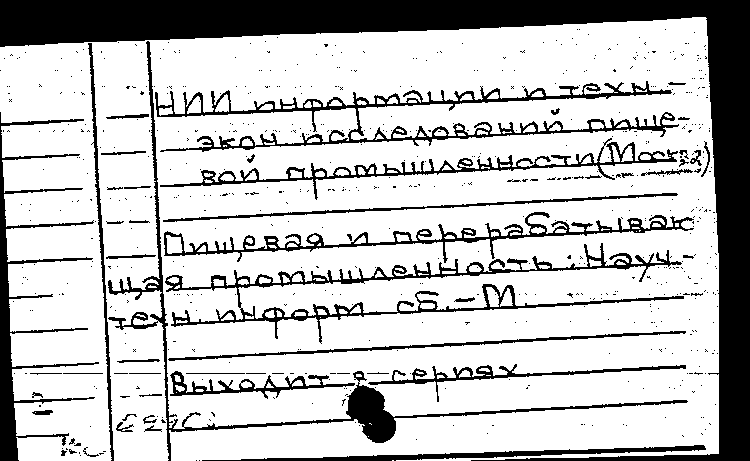 НИИ информации и техн.-
экон исследований пище-
вой промышленности (Москва)
Пищевая и перерабатываю
щая промышленность: Науч.-
техн. информ сб. - М.
Выходит в сериях